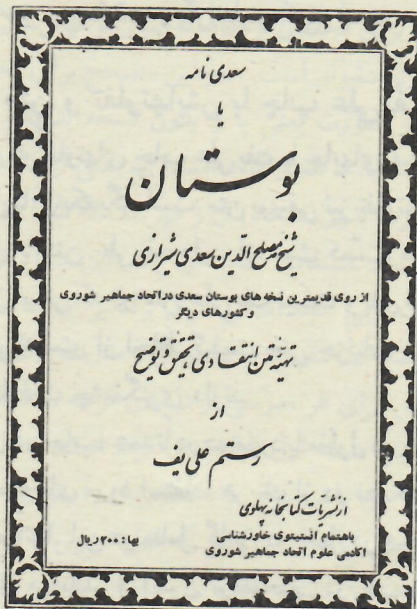 سعدی نامه
یا
بوستان
شیخ مصلح الدین سعدی شیرازی
از روی قدیمترین نسخه های بوستان سعدی در اتحاد جماهیر شوروی
و کشورهای دیگر
تهیهٔ متن انتقادی، تحقیق و توضیح
از
رستم علی یف
از نشریات کتابخانه پهلوی
باهتمام انستیتوی خاورشناسی
آکادمی علوم اتحاد جماهیر شوروی
بها: ۲۰۰ ریال